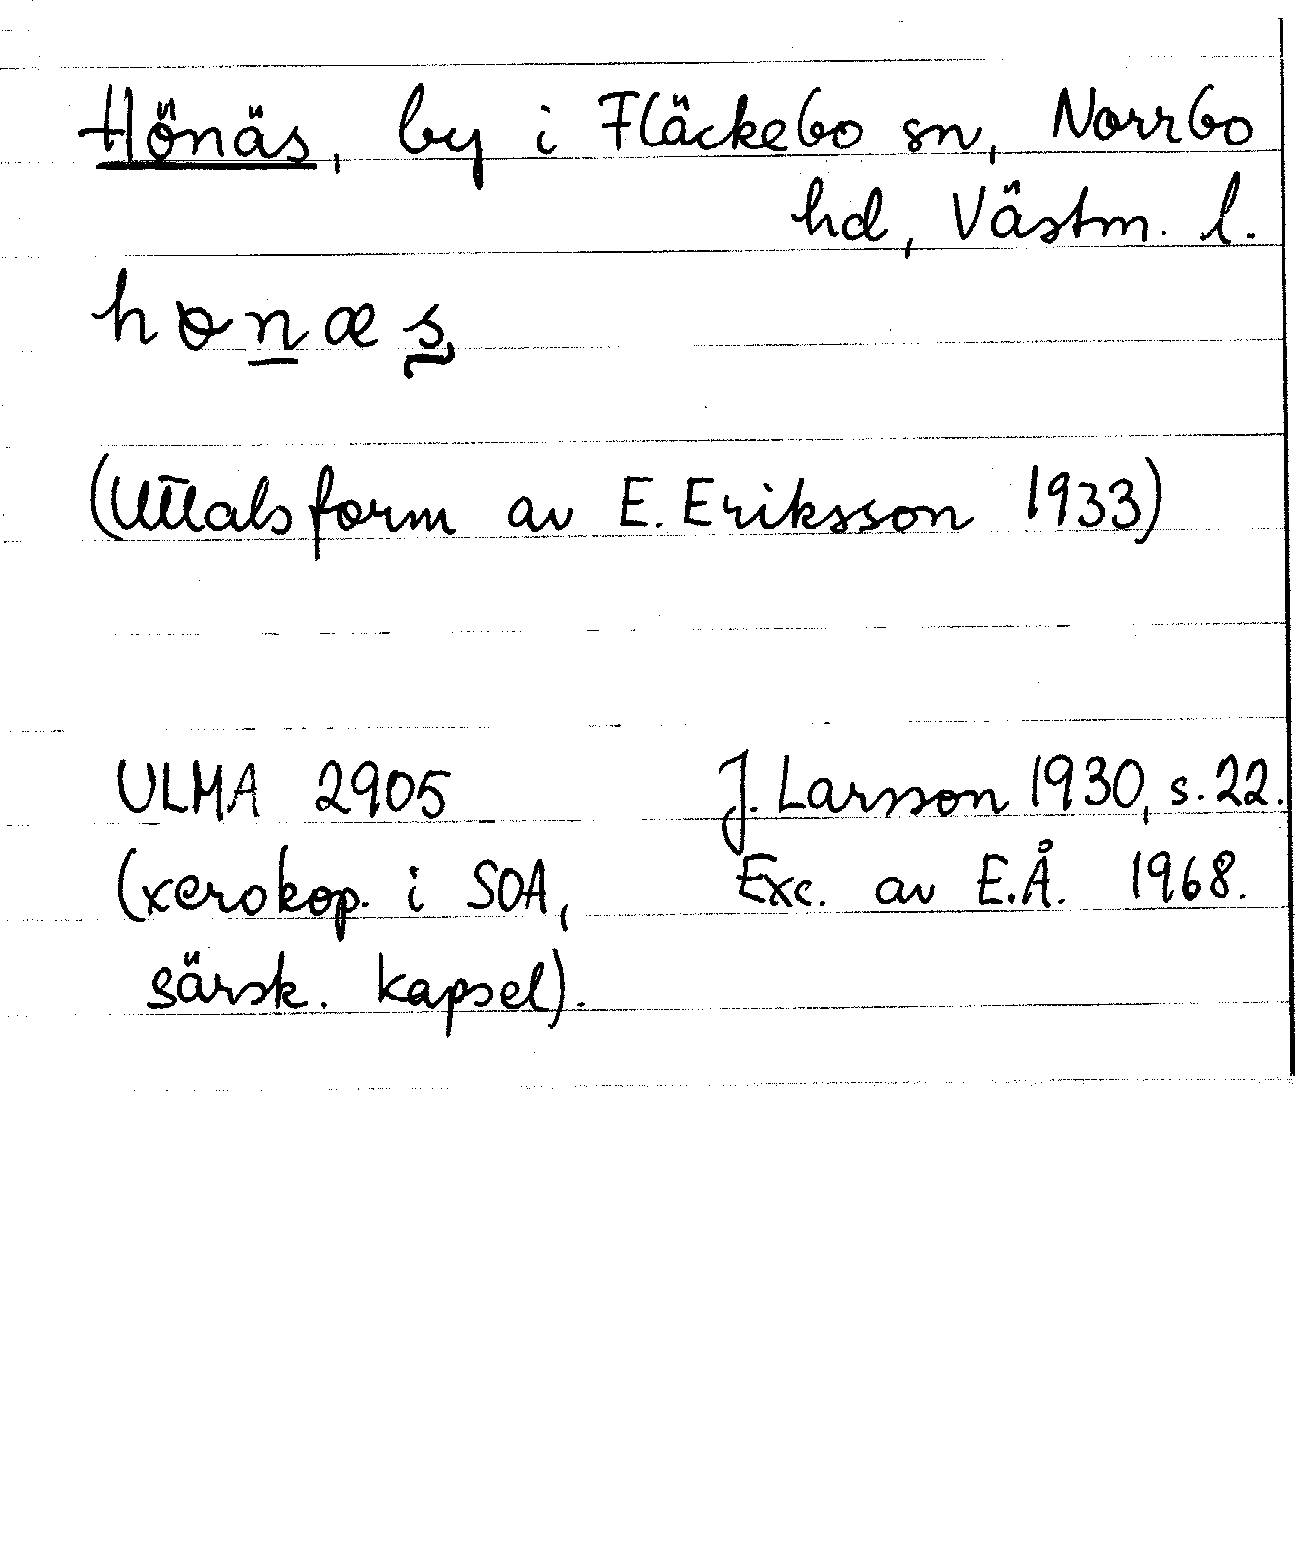 Hönäs, by i Fläckebo sn, Norrbo
hd, Västm. l.
hɵnæs
(Uttalsform av E. Eriksson 1933)
ULMA 2905 J. Larsson 1930, s. 22.
(xerokop. i SOA, Exc. av E.Å. 1968.
särsk. kapsel).